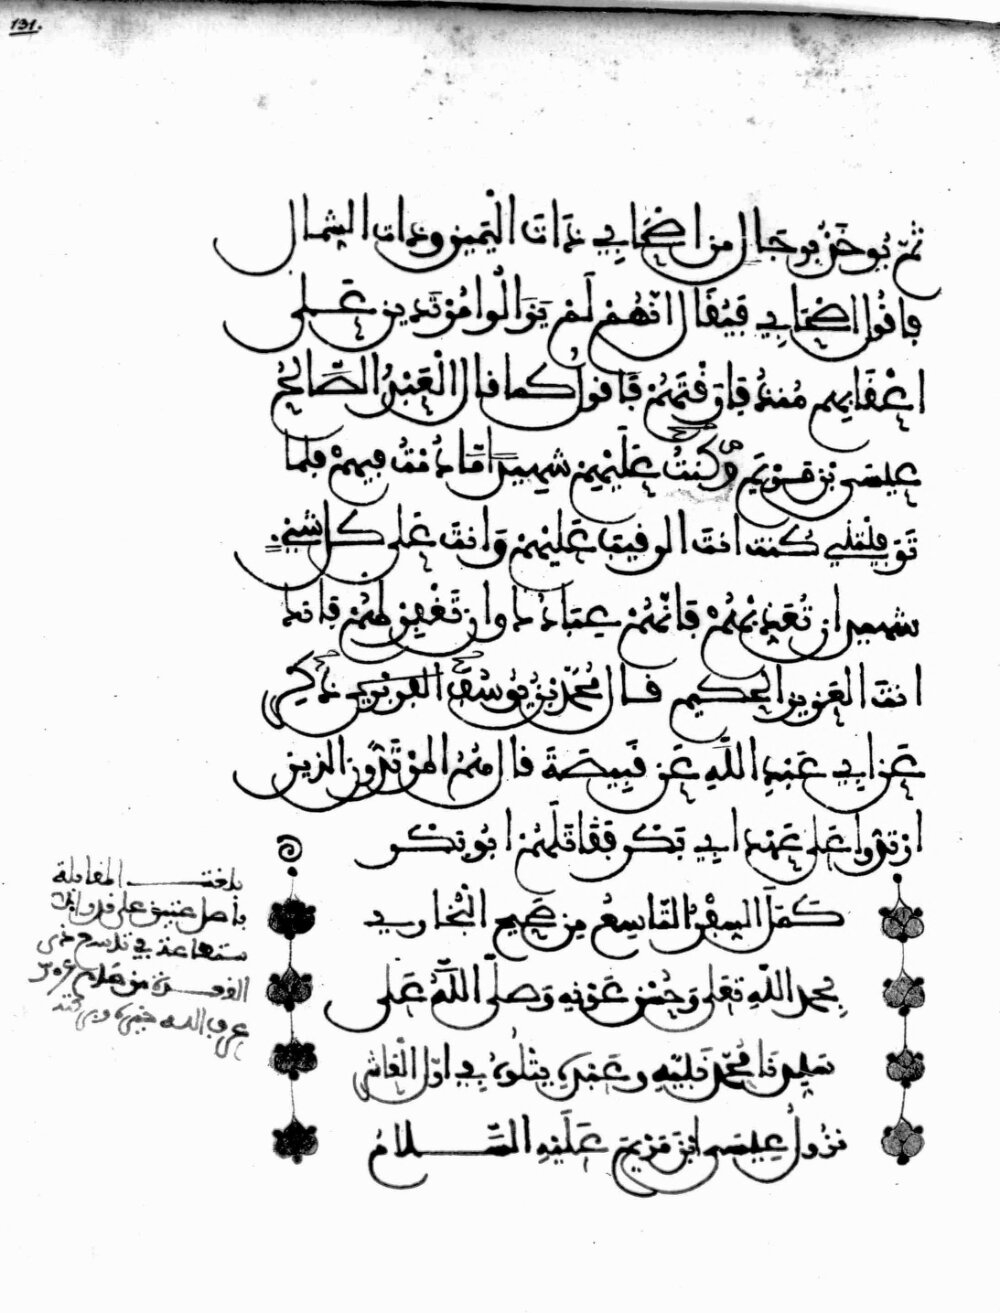 131.
ثم يوخذ برجال من اصحابي ذات اليمين وذات الشمال
فاقول اصحابي فيقال انهم لم يزالوا مرتدين على
اعقابهم منذ فارقتهم فاقول كما قال العبد الصالح
عيسى بن مريم وكنت عليهم شهيدا ما دمت فيهم فلما
توفيتني كنت انت الرقيب عليهم وانت على كل شيء
شهيد ان تعذبهم فانهم عبادك وان تغفر لهم فانك
انت العزيز الحكيم قال محمد بن يوسف الفربري ذكر
عن ابي عبد الله عن قبيصة قال هم المرتدون الذين
ارتدوا على عهد ابي بكر فقاتلهم ابو بكر
كمل السفر التاسع من صحيح البخاري
بحمد الله تعلى وحسن عونه وصلى الله على
سيدنا محمد نبيه وعبده يتلوه في اول العاشر
نزول عيسى ابن مريم عليه السلام
بلغت المقابلة
باصل عتيق على
من عام
عرف الله خيره